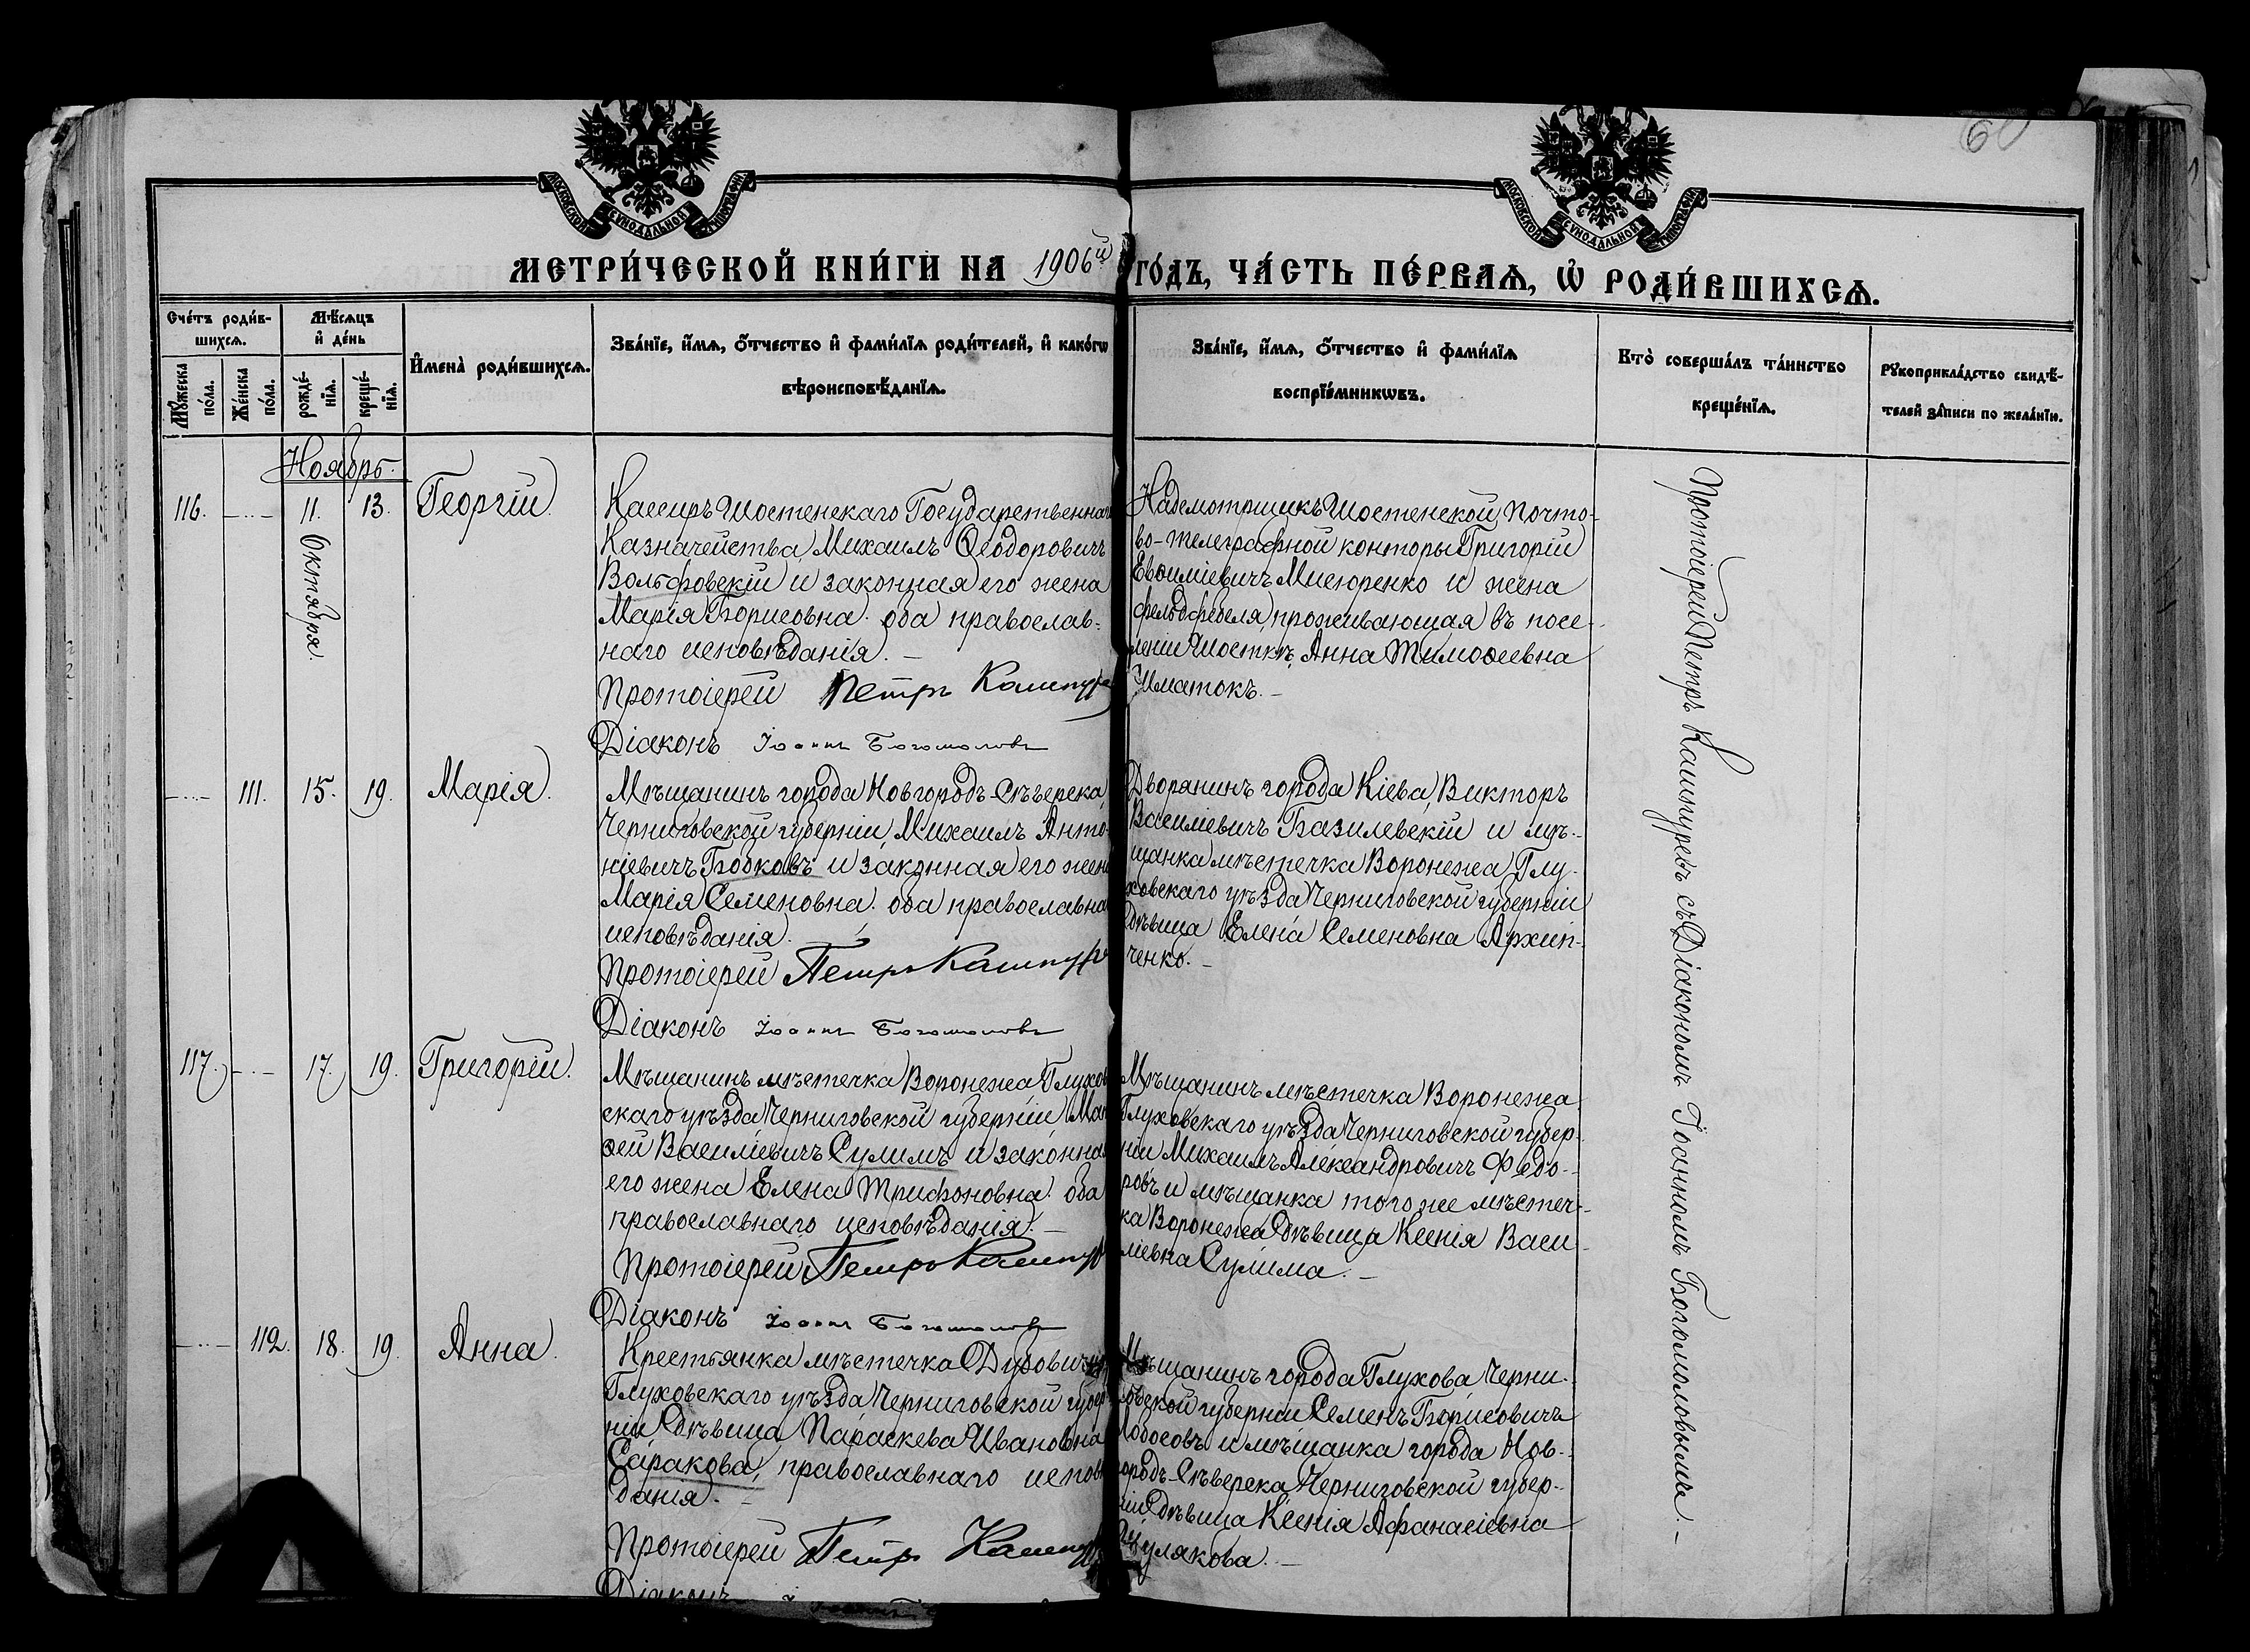 60
МОСКОВСКОЙ СУНОДАЛЬНОЙ ТИПОГРАФІИ
МОСКОВСКОЙ СУНОДАЛЬНОЙ ТИПОГРАФІИ
МЕТРИ́ЧЕСКОЙ КНИ́ГИ НА 1906й ГО́ДЪ, ЧА́СТЬ ПЕ́РВАѦ, Ѡ РОДИ́ВШИХСѦ.
Сче́тъ роди́в-
шихсѧ.
Мꙋжеска
по́ла.
Же́нска
по́ла.
Мѣ́сѧцъ
и де́нь
рожде́-
нїѧ.
креще́-
нїѧ.
Имена̀ роди́вшихсѧ.
Зва́нїе, и́мѧ, о́тчество и фами́лїѧ роди́телей, и како́гѡ
вѣроисповѣ́данїѧ.
Зва́нїе, и́мѧ, о́тчество и фами́лїѧ
воспрїе́мникѡвъ.
Кто̀ соверша́лъ та́инство
креще́нїѧ.
Рꙋкоприкла́дство свидѣ́-
телей за́писи по жела́нїю.
Ноябрь.
116. 11. Октября. 13. Георгій.
Кассиръ Шостенскаго Государственнаго
Казначейства, Михаилъ Ѳеодоровичъ
Вольфовскій и законная его жена
Марія Борисовна. оба православ-
наго исповѣданія. —
Протоіерей Петръ Кашпур
Діаконъ Іоаннъ Богомоловъ
Надсмотрщикъ Шостенской почто-
во-телеграфной конторы Григорій
Евѳиміевичъ Мисюренко и жена
фельдфебеля, проживающая въ посе-
леніи Шосткѣ, Анна Тимоѳеевна
Шматокъ. —
111. 15. 19. Марія.
Мѣщанинъ города Новгородъ-Сѣверска,
Черниговской губерніи, Михаилъ Анто-
ніевичъ Бобковъ и законная его жена
Марія Семеновна. оба православна
исповѣданія.
Протоіерей Петръ Кашпур
Діаконъ Іоаннъ Богомоловъ
Дворянинъ города Кіева, Викторъ
Василіевичъ Базилевскій и мѣ-
щанка мѣстечка Воронежа, Глу-
ховскаго уѣзда Черниговской губерніи
дѣвица Елена Семеновна Архип-
ченко. —
117. 17. 19. Григорій.
Мѣщанинъ мѣстечка Воронежа Глухов
скаго уѣзда Черниговской губерніи Мат
ѳей Василіевичъ Сулимъ и законная
его жена Елена Трифоновна. оба
православнаго исповѣданія. —
Протоіерей Петръ Кашпур
Діаконъ Іоаннъ Богомоловъ
Мѣщанинъ мѣстечка Воронежа
Глуховскаго уѣзда Черниговской губер-
ніи Михаилъ Александровичъ Федо-
ровъ и мѣщанка того же мѣстеч-
ка Воронежа дѣвица Ксенія Васи-
ліевна Сулима. —
112. 18. 19. Анна.
Крестьянка мѣстечка Дубовичъ
Глуховскаго уѣзда Черниговской губер
ніи дѣвица Параскева Ивановна
Саракова, православнаго исповѣ
данія. —
Протоіерей Петръ Кашпур
Діаконъ
Мѣщанинъ города Глухова Черни-
говской губерніи Семенъ Борисовичъ
Лобосовъ и мѣщанка города Нов-
городъ-Сѣверска Черниговской губер-
ніи дѣвица Ксенія Афанасіевна
Протоіерей Петръ Кашпуръ съ Діакономъ Іоанномъ Богомоловымъ. —